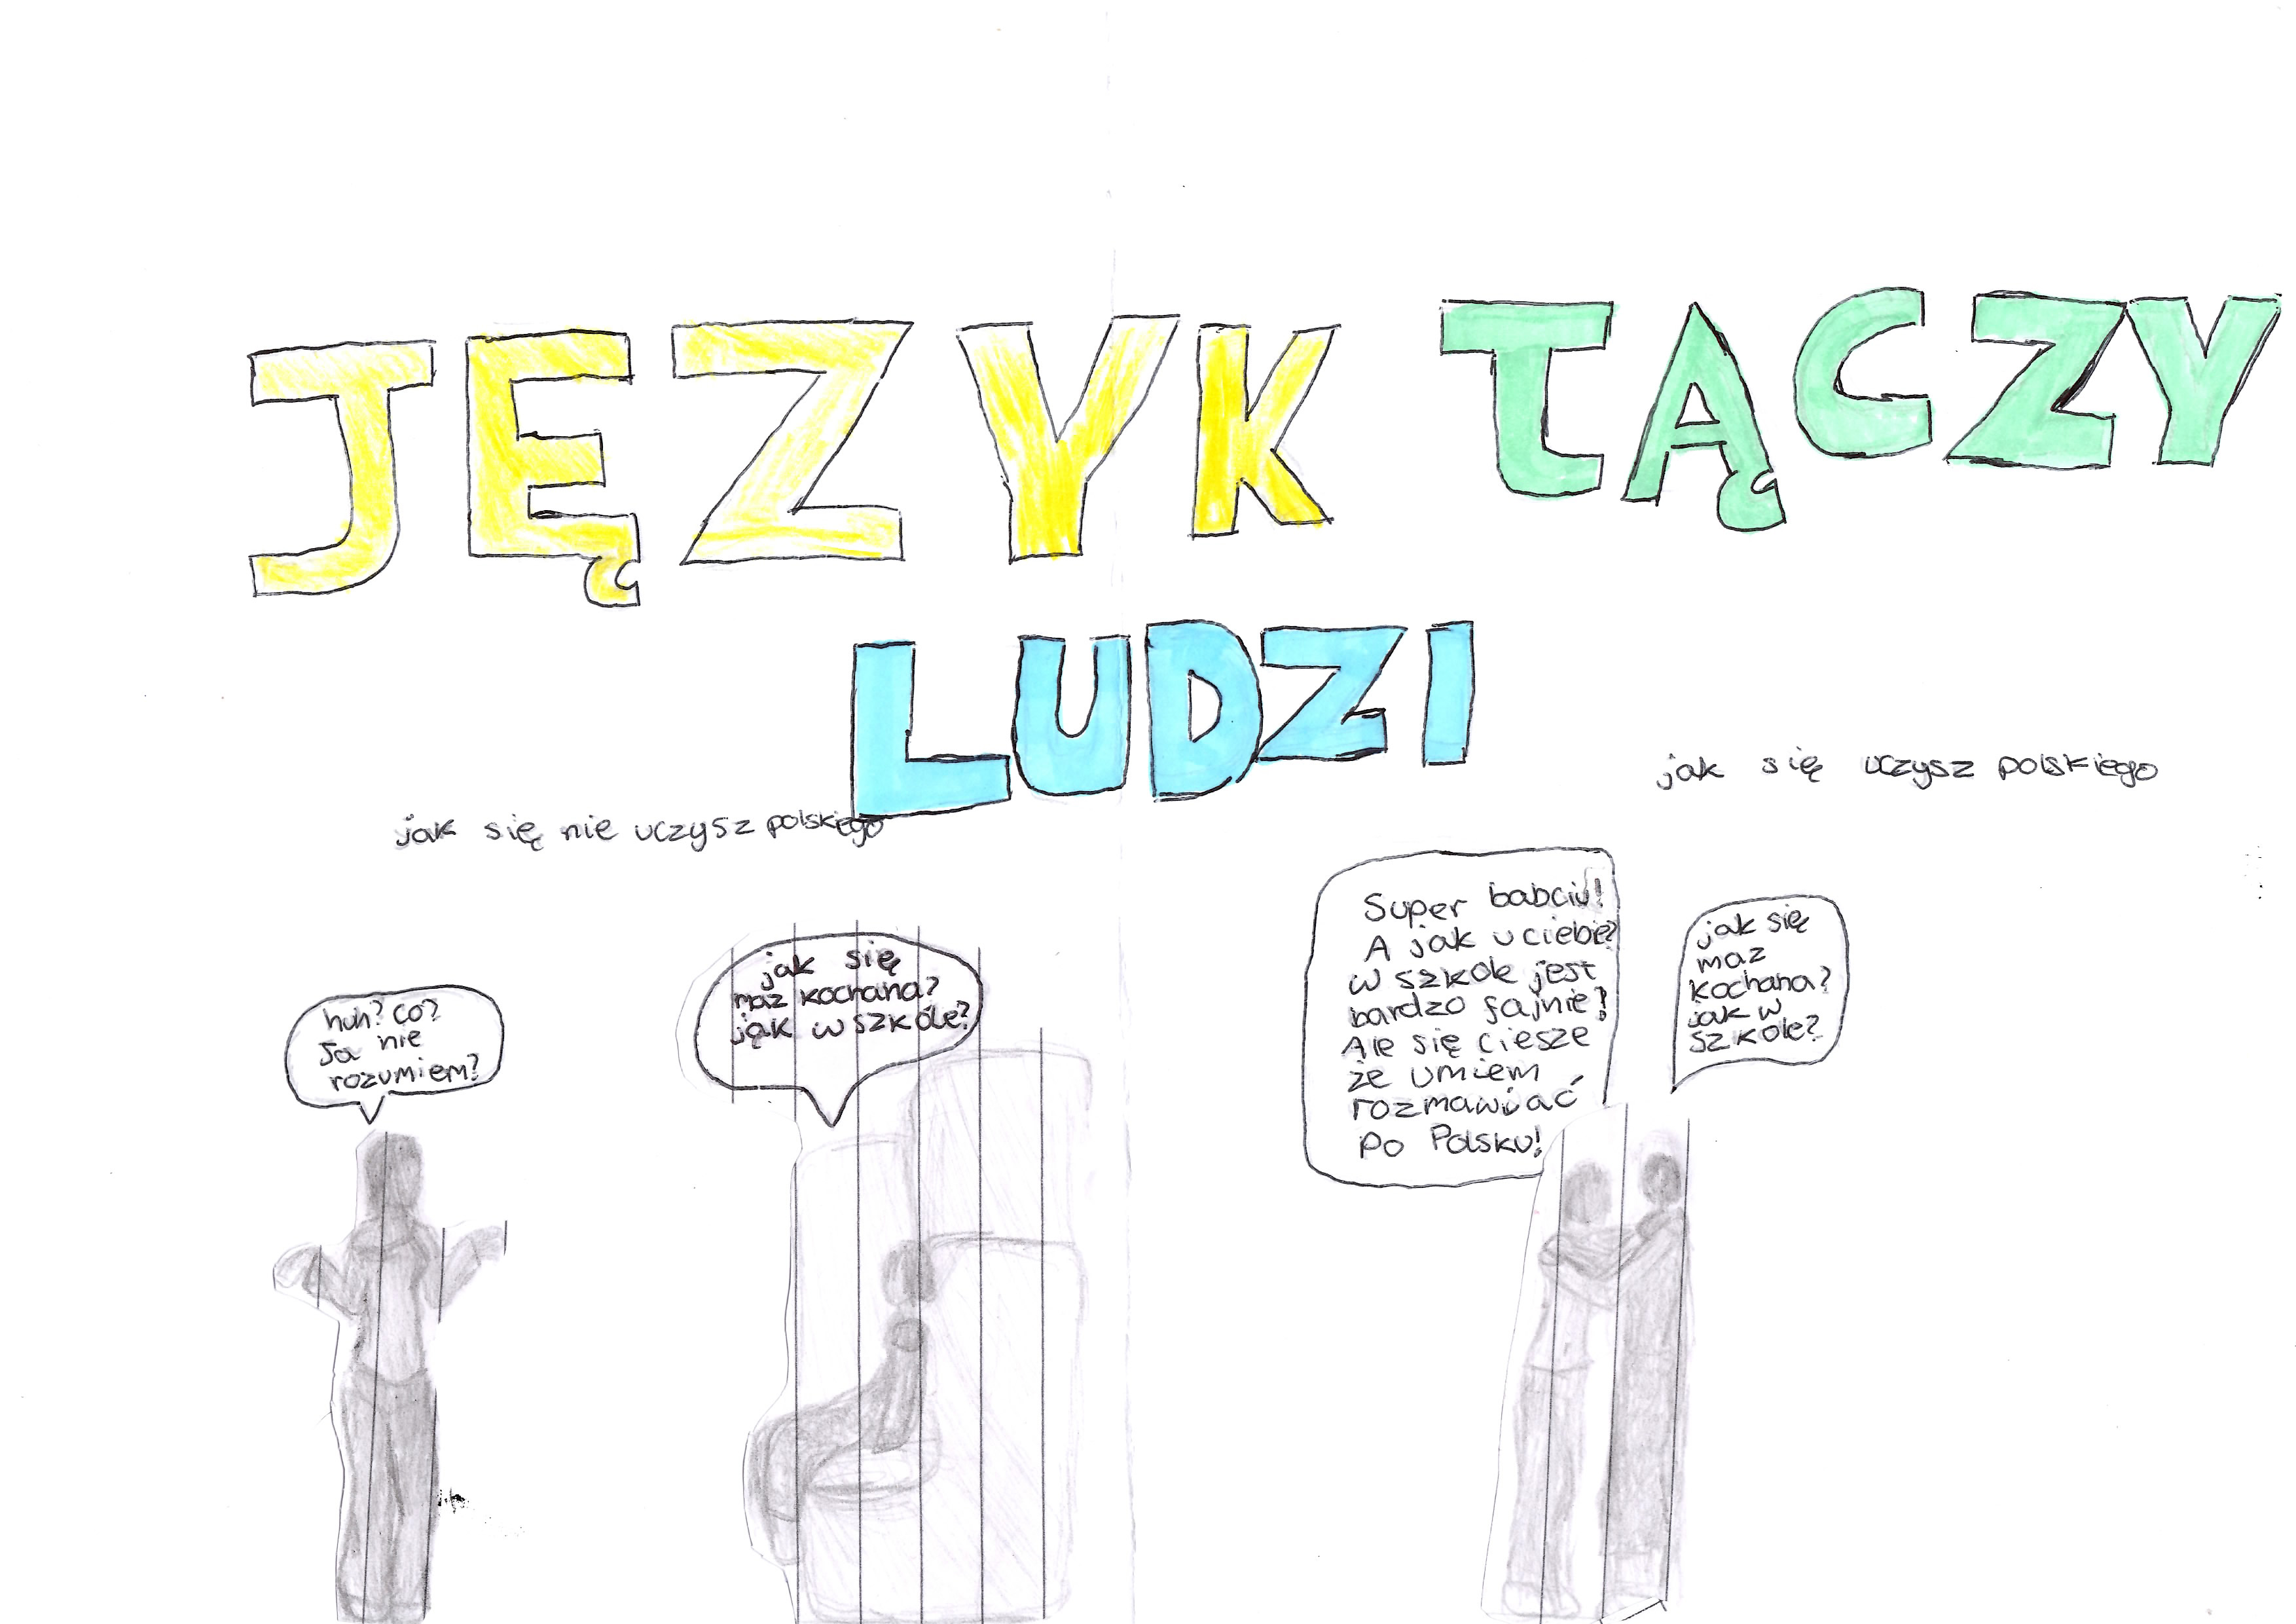 JĘZYK ŁĄCZY
LUDZI
jak się nie uczysz polskiego
jak się uczysz polskiego
huh? co?
Ja nie
rozumiem?
jak się
maz kochana?
jak w szkóle?
Super babciu!
A jak u ciebie?
w szkole jest
bardzo fajnie!
Ale się ciesze
że umiem
rozmawiać
po Polsku!
jak się
maz
kochana?
jak w
szkole?